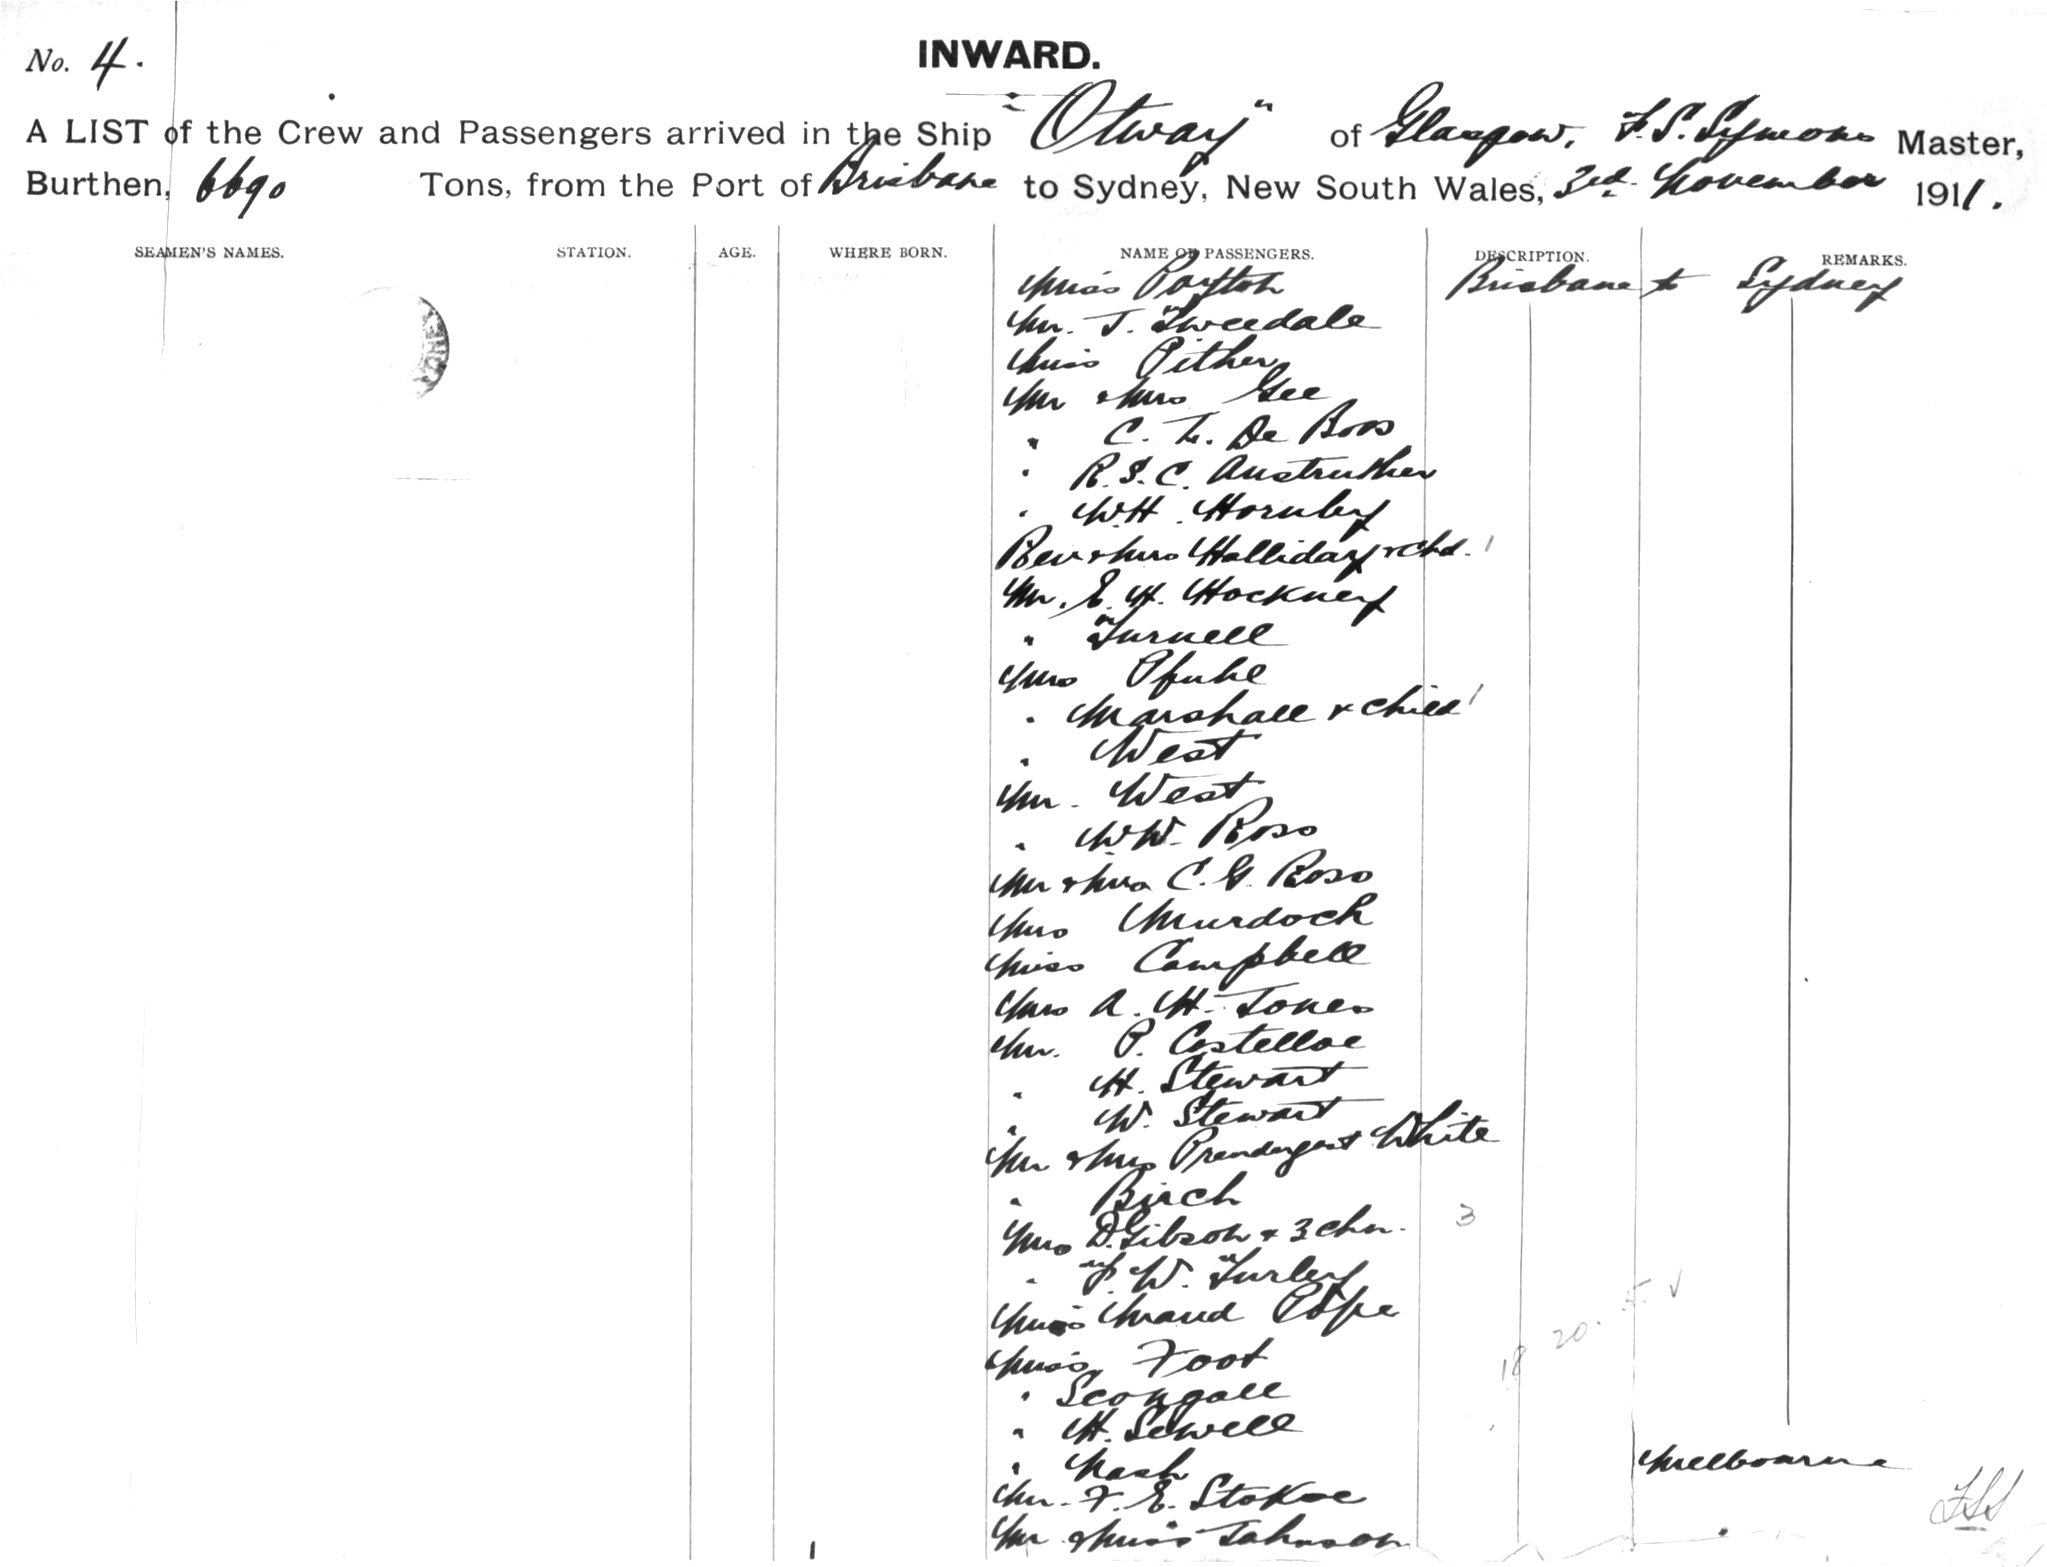 No. 4.
INWARD.
A LIST of the Crew and Passengers arrived in the Ship "Otway" of Glasgow, F. S. Symons Master,
Burthen, 6690 Tons, from the Port of Brisbane to Sydney, New South Wales, 3rd November 1911.
SEAMEN'S NAMES. STATION. AGE. WHERE BORN. NAME OF PASSENGERS. DESCRIPTION. REMARKS.
Miss Payton Brisbane to Sydney
Mr. J. Tweedale
Miss Pither
Mr & Mrs Gee
" C. L. De Boos
" R. S. C. Austruther
" W.H. Hornby
Rev & Mrs Halliday & Chd. 1
Mr. E. H. Hockney
" Turnell
Mrs Pfuhl
" Marshall & Child 1
" West
Mr. West
" W.W. Ross
Mr & Mrs C. G. Ross
Mrs Murdoch
Miss Campbell
Mrs A. H. Jones
Mr. P. Costelloe
" H. Stewart
" W. Stewart
Mr & Mrs Prendergast White
" Birch
Mrs D. Gibson & 3 chn. 3
" J. W. Turley
Miss Maud Pope
Miss Foot
18 20. 5 √
" Scongall
" H. Sewell
" Nash Melbourne
Mr. F. E. Stokoe
FSS
Mr & Miss Johnson